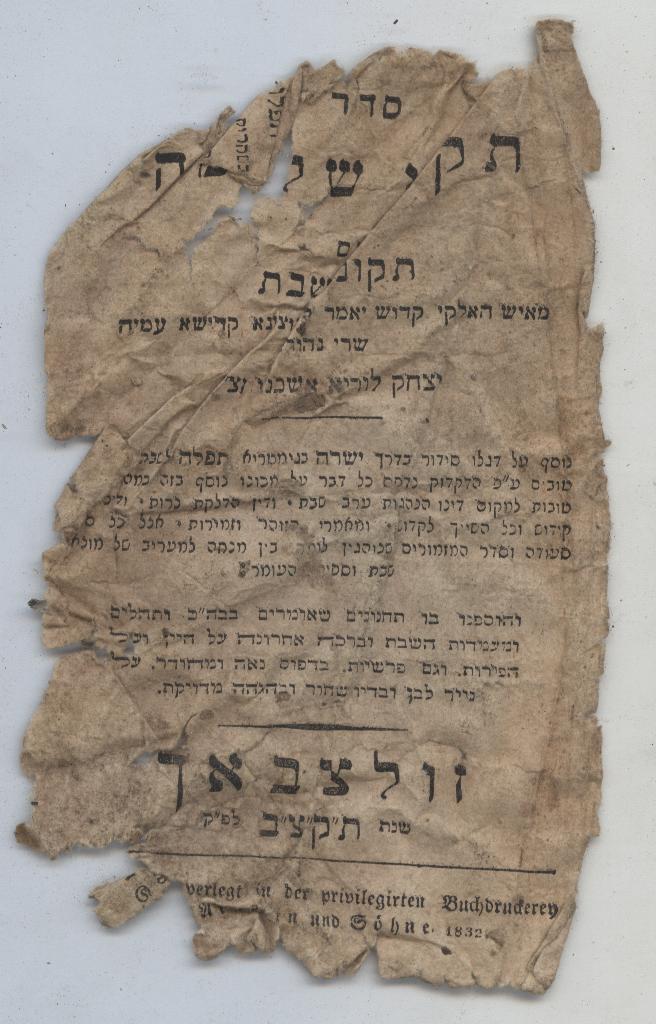 סדר
תקו
תקוני שבת
מאיש האלקי קדוש יאמר קדישא עמיה
שרי נהורא
יצחק לוריא אשכנזי זצ
נוסף על דגלו סידור בדרך ישרה בגימטריא תפלה לשבת
טובים ע״פ הדקדוק נדפס כל דבר על מכונו נוסף בזה כמה
טובות למקום דינו הנהגות ערב שבת ודין הדלקת נרות
קידוש וכל השייך לקדוש ומאמרי הזוהר וזמירות אצל כל
סעודה וסדר המזמורים שנוהגין לומר בין מנחה למעריב של מוצאי
שבת וספירת העומר
והוספנו בו תחנונים שאומרים בבה״כ ותהלים
ומעמדות השבת וברכה אחרונה על היין ועל
הפירות. וגם פרשיות. בדפוס נאה ומהודר. על
נייר לבן ובדיו שחור ובהגהה מדויקת.
זולצבאך
שנת ת״ק״צ״ב לפ״ק
verlegt in der privilegirten Buchdruckerey
und Söhne. 1832.